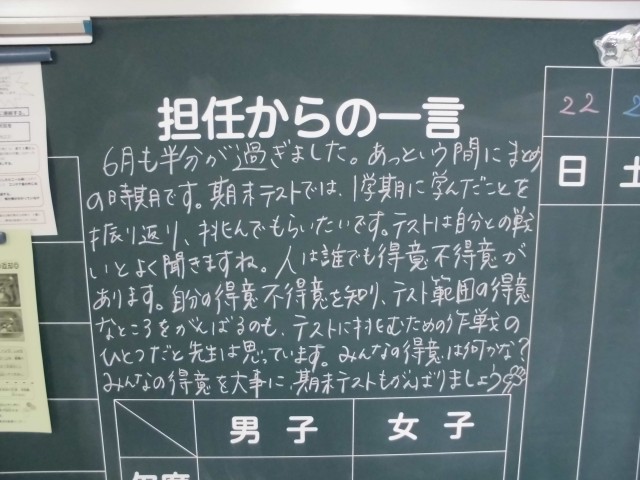 担任からの一言
6月も半分が過ぎました。あっという間にまとめ
の時期です。期末テストでは、1学期に学んだことを
振り返り、挑んでもらいたいです。テストは自分との戦
いとよく聞きますね。人は誰でも得意不得意が
あります。自分の得意不得意を知り、テスト範囲の得意
なところをがんばるのも、テストに挑むための作戦の
ひとつだと先生は思っています。みんなの得意は何かな?
みんなの得意を大事に、期末テストもがんばりましょう
22
日
土
男子
女子